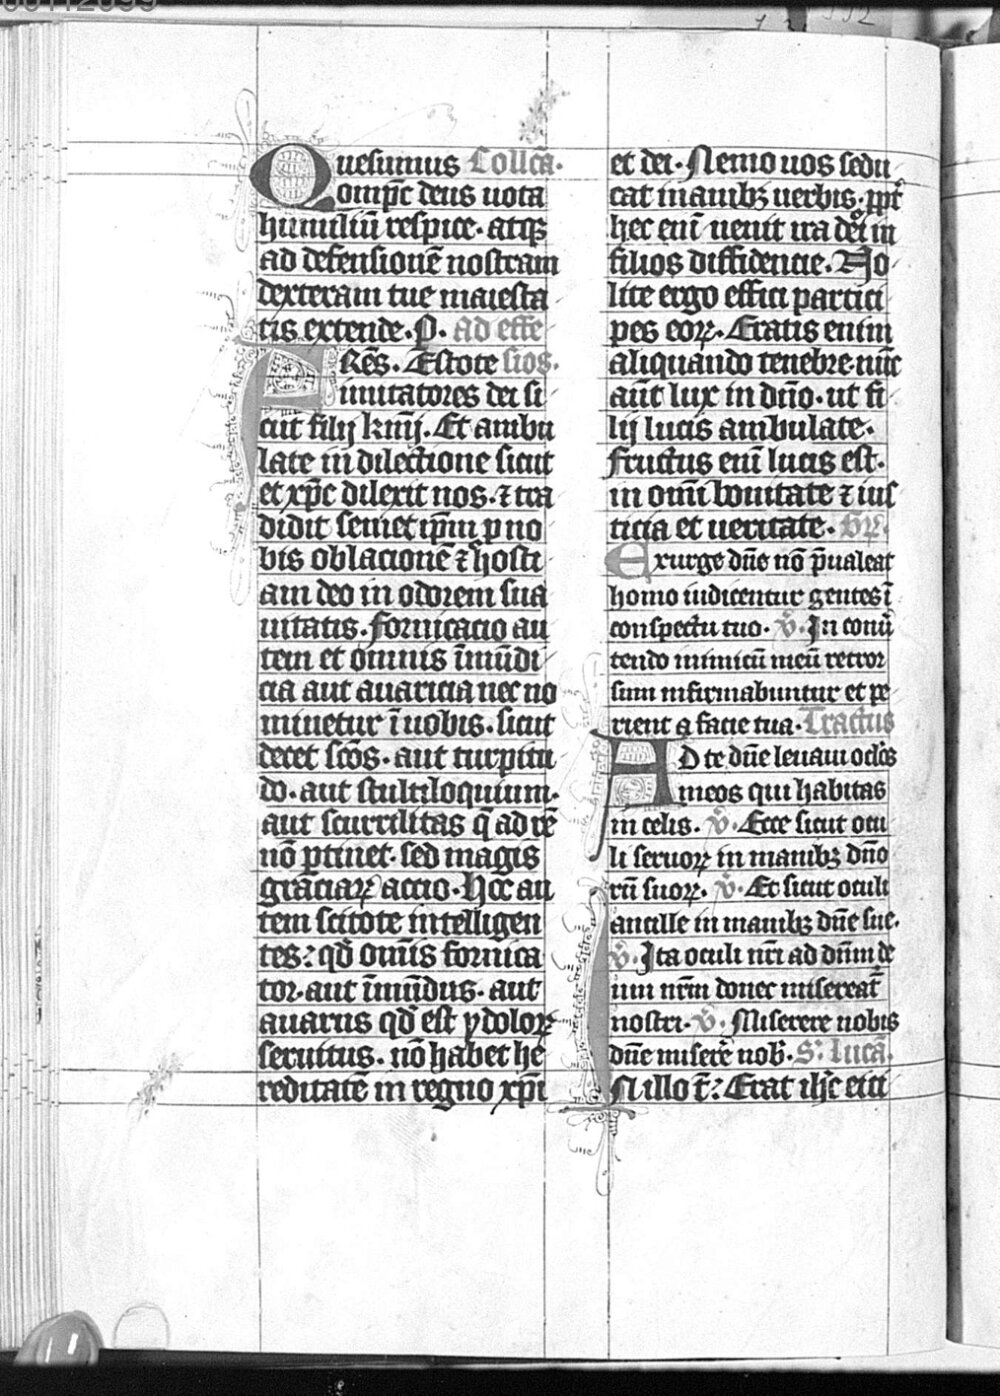 Quesumus Collcā.
omp̄c deus uota
humiliū respice. atqꝫ
ad defensionē nostram
dexteram tue maiesta
tis extende. P. Ad effe
FRēs. Estote sios.
imitatores dei si
cut filij km̄j. Et ambu
late in dilectione sicut
et xp̄c dilexit nos. ⁊ tra
didit semet ip̄m p no
bis oblacionē ⁊ hosti
am deo in odorem sua
uitatis. fornicacio au
tem et omnis īmūdi
cia aut auaricia nec no
minetur ī uobis. sicut
decet scōs. aut turpitu
do. aut stultiloquium.
aut scurrilitas q̄ ad rē
nō ꝑtinet. sed magis
graciaꝝ accio. Hoc au
tem scitote intelligen
tes: qd̄ omīs fornica
tor. aut īmūdus. aut
auarus qd̄ est ydoloꝝ
seruitus. nō habet he
reditatē in regno xp̄i
et dei. Nemo uos sedu
cat inanibꝫ uerbis. ꝓpt̾
hec eni uenit ira dei in
filios diffidencie. No
lite ergo effici partici
pes eoꝝ. Eratis enim
aliquando tenebre. nūc
aūt lux in dn̄o. ut fi
lij lucis ambulate.
fructus enī lucis est.
in omī bonitate ⁊ ius
ticia et ueritate. Gr̄.
Exurge dn̄e nō p̄ualeat
homo iudicentur gentes ī
conspectu tuo. v̄. In conū
tendo inimicū meū retror
sum infirmabuntur et pe
rient a facie tua. Tractus
AD te dn̄e leuaui oc̄los
meos qui habitas
in celis. v̄. Ecce sicut ocu
li seruoꝝ in manibꝫ dn̄o
rū suoꝝ. v̄. Et sicut oculi
ancille in manibꝫ dn̄e sue.
v̄. Ita oculi nr̄i ad dn̄m de
um nr̄m donec misereat̾
nostri. v̄. Miserere nobis
dn̄e miserē nob̄. S: lucā.
IN illo t̄: Erat ih̄c eici